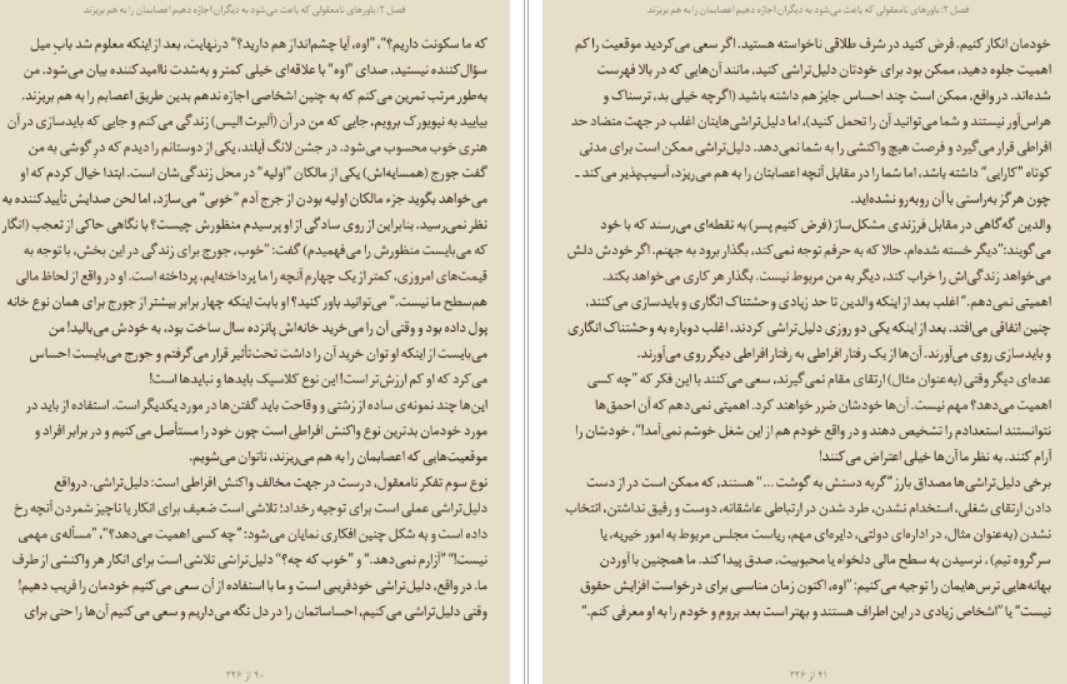 فصل ۲: باورهای نامعقولی که باعث می‌شود به دیگران اجازه دهیم اعصابمان را به هم بریزند
که ما سکونت داریم؟"، "اوه، آیا چشم‌انداز هم دارید؟" درنهایت، بعد از اینکه معلوم شد باب میل
سؤال‌کننده نیستید، صدای "اوه" با علاقه‌ای خیلی کمتر و به‌شدت ناامیدکننده بیان می‌شود. من
به‌طور مرتب تمرین می‌کنم که به چنین اشخاصی اجازه ندهم بدین طریق اعصابم را به هم بریزند.
بیایید به نیویورک برویم، جایی که من در آن (آلبرت الیس) زندگی می‌کنم و جایی که بایدسازی در آن
هنری خوب محسوب می‌شود. در جشن لانگ آیلند، یکی از دوستانم را دیدم که در گوشی به من
گفت جورج (همسایه‌اش) یکی از مالکان "اولیه" در محل زندگی‌شان است. ابتدا خیال کردم که او
می‌خواهد بگوید جزء مالکان اولیه بودن از جرج آدم "خوبی" می‌سازد، اما لحن صدایش تأییدکننده به
نظر نمی‌رسید. بنابراین از روی سادگی از او پرسیدم منظورش چیست؟ با نگاهی حاکی از تعجب (انگار
که می‌بایست منظورش را می‌فهمیدم) گفت: "خوب، جورج برای زندگی در این بخش، با توجه به
قیمت‌های امروزی، کمتر از یک چهارم آنچه را ما پرداخته‌ایم، پرداخته است. او در واقع از لحاظ مالی
هم‌سطح ما نیست." می‌توانید باور کنید؟ او بابت اینکه چهار برابر بیشتر از جورج برای همان نوع خانه
پول داده بود و وقتی آن را می‌خرید خانه‌اش پانزده سال ساخت بود، به خودش می‌بالید! من
می‌بایست از اینکه او توان خرید آن را داشت تحت‌تأثیر قرار می‌گرفتم و جورج می‌بایست احساس
می‌کرد که او کم ارزش‌تر است! این نوع کلاسیک بایدها و نبایدها است!
این‌ها چند نمونه‌ی ساده از زشتی و وقاحت باید گفتن‌ها در مورد یکدیگر است. استفاده از باید در
مورد خودمان بدترین نوع واکنش افراطی است چون خود را مستأصل می‌کنیم و در برابر افراد و
موقعیت‌هایی که اعصابمان را به هم می‌ریزند، ناتوان می‌شویم.
نوع سوم تفکر نامعقول، درست در جهت مخالف واکنش افراطی است: دلیل‌تراشی. درواقع
دلیل‌تراشی عملی است برای توجیه رخداد؛ تلاشی است ضعیف برای انکار یا ناچیز شمردن آنچه رخ
داده است و به شکل چنین افکاری نمایان می‌شود: "چه کسی اهمیت می‌دهد؟"، "مسأله‌ی مهمی
نیست!" "آزارم نمی‌دهد." و "خوب که چه؟" دلیل‌تراشی تلاشی است برای انکار هر واکنشی از طرف
ما. در واقع، دلیل‌تراشی خودفریبی است و ما با استفاده از آن سعی می‌کنیم خودمان را فریب دهیم!
وقتی دلیل‌تراشی می‌کنیم، احساساتمان را در دل نگه می‌داریم و سعی می‌کنیم آن‌ها را حتی برای
۴۰ از ۳۲۶
فصل ۲: باورهای نامعقولی که باعث می‌شود به دیگران اجازه دهیم اعصابمان را به هم بریزند
خودمان انکار کنیم. فرض کنید در شرف طلاقی ناخواسته هستید. اگر سعی می‌کردید موقعیت را کم
اهمیت جلوه دهید، ممکن بود برای خودتان دلیل‌تراشی کنید، مانند آن‌هایی که در بالا فهرست
شده‌اند. در واقع، ممکن است چند احساس جایز هم داشته باشید (اگرچه خیلی بد، ترسناک و
هراس‌آور نیستند و شما می‌توانید آن را تحمل کنید)، اما دلیل‌تراشی‌هایتان اغلب در جهت متضاد حد
افراطی قرار می‌گیرد و فرصت هیچ واکنشی را به شما نمی‌دهد. دلیل‌تراشی ممکن است برای مدتی
کوتاه "کارایی" داشته باشد، اما شما را در مقابل آنچه اعصابتان را به هم می‌ریزد، آسیب‌پذیر می‌کند ـ
چون هرگز به‌راستی با آن روبه‌رو نشده‌اید.
والدین گه‌گاهی در مقابل فرزندی مشکل‌ساز (فرض کنیم پسر) به نقطه‌ای می‌رسند که با خود
می‌گویند: "دیگر خسته شده‌ام. حالا که به حرفم توجه نمی‌کند، بگذار برود به جهنم. اگر خودش دلش
می‌خواهد زندگی‌اش را خراب کند، دیگر به من مربوط نیست. بگذار هر کاری می‌خواهد بکند.
اهمیتی نمی‌دهم." اغلب بعد از اینکه والدین تا حد زیادی وحشتناک انگاری و بایدسازی می‌کنند،
چنین اتفاقی می‌افتد. بعد از اینکه یکی دو روزی دلیل‌تراشی کردند، اغلب دوباره به وحشتناک انگاری
و بایدسازی روی می‌آورند. آن‌ها از یک رفتار افراطی به رفتار افراطی دیگر روی می‌آورند.
عده‌ای دیگر وقتی (به‌عنوان مثال) ارتقای مقام نمی‌گیرند، سعی می‌کنند با این فکر که "چه کسی
اهمیت می‌دهد؟ مهم نیست. آن‌ها خودشان ضرر خواهند کرد. اهمیتی نمی‌دهم که آن احمق‌ها
نتوانستند استعدادم را تشخیص دهند و در واقع خودم هم از این شغل خوشم نمی‌آمد!"، خودشان را
آرام کنند. به نظر ما آن‌ها خیلی اعتراض می‌کنند!
برخی دلیل‌تراشی‌ها مصداق بارز "گربه دستش به گوشت ..." هستند، که ممکن است در از دست
دادن ارتقای شغلی، استخدام نشدن، طرد شدن در ارتباطی عاشقانه، دوست و رفیق نداشتن، انتخاب
نشدن (به‌عنوان مثال، در اداره‌ای دولتی، دایره‌ای مهم، ریاست مجلس مربوط به امور خیریه، یا
سرگروه تیم) ، نرسیدن به سطح مالی دلخواه یا محبوبیت، صدق پیدا کند. ما همچنین با آوردن
بهانه‌هایی ترس‌هایمان را توجیه می‌کنیم: "اوه، اکنون زمان مناسبی برای درخواست افزایش حقوق
نیست" یا "اشخاص زیادی در این اطراف هستند و بهتر است بعد بروم و خودم را به او معرفی کنم."
۴۱ از ۳۲۶